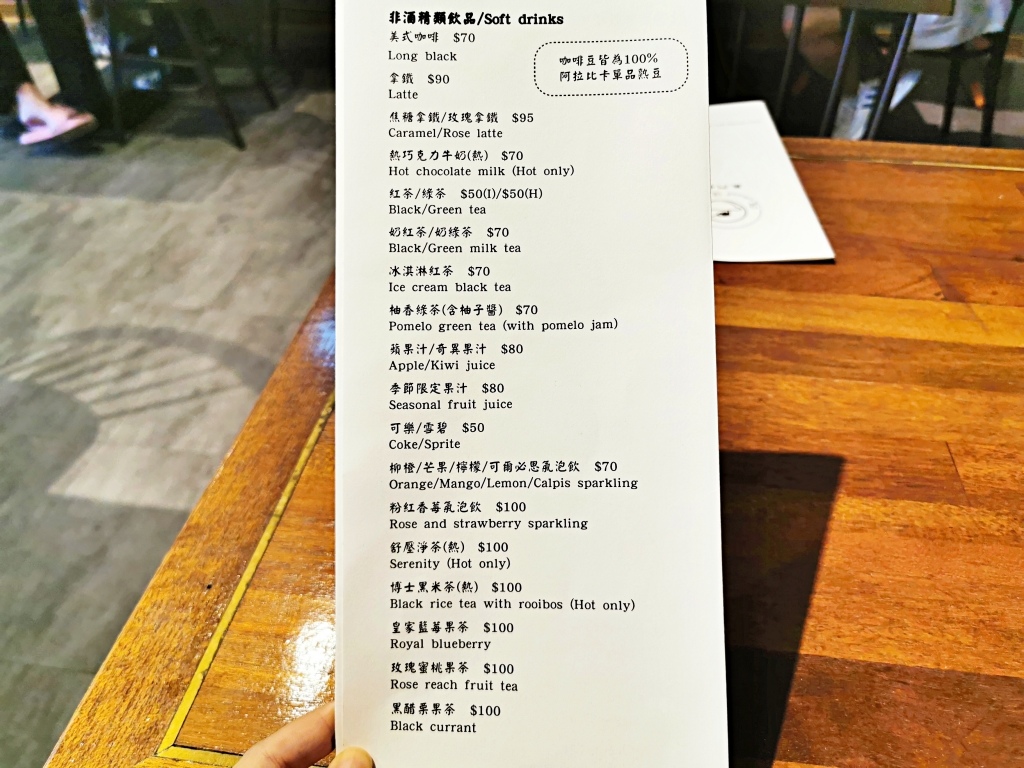 非酒精類飲品/Soft drinks
美式咖啡 $70
Long black
咖啡豆皆為100%
阿拉比卡單品熟豆
拿鐵 $90
Latte
焦糖拿鐵/玫瑰拿鐵 $95
Caramel/Rose latte
熱巧克力牛奶(熱) $70
Hot chocolate milk (Hot only)
紅茶/綠茶 $50(I)/$50(H)
Black/Green tea
奶紅茶/奶綠茶 $70
Black/Green milk tea
冰淇淋紅茶 $70
Ice cream black tea
柚香綠茶(含柚子醬) $70
Pomelo green tea (with pomelo jam)
蘋果汁/奇異果汁 $80
Apple/Kiwi juice
季節限定果汁 $80
Seasonal fruit juice
可樂/雪碧 $50
Coke/Sprite
柳橙/芒果/檸檬/可爾必思氣泡飲 $70
Orange/Mango/Lemon/Calpis sparkling
粉紅香莓氣泡飲 $100
Rose and strawberry sparkling
舒壓淨茶(熱) $100
Serenity (Hot only)
博士黑米茶(熱) $100
Black rice tea with rooibos (Hot only)
皇家藍莓果茶 $100
Royal blueberry
玫瑰蜜桃果茶 $100
Rose reach fruit tea
黑醋栗果茶 $100
Black currant